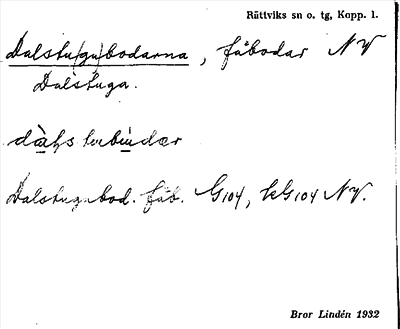 Rättviks sn o. tg, Kopp. l.
Dalstu(gu)bodarna, fäbodar NV
Dalstuga.
Dalstugubod. fäb. G104, kG104 NV.
Bror Lindén 1932